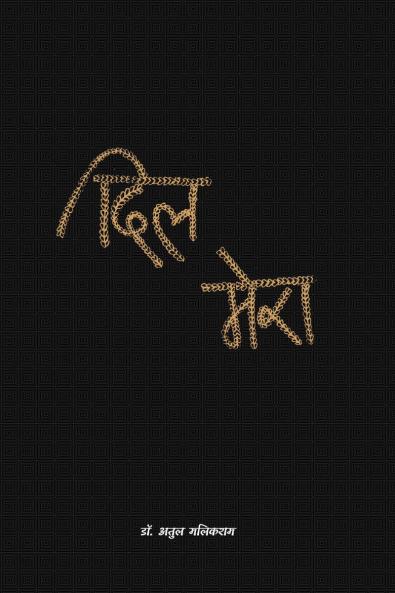 दिल
मेरा
डॉ. अतुल मलिकराम